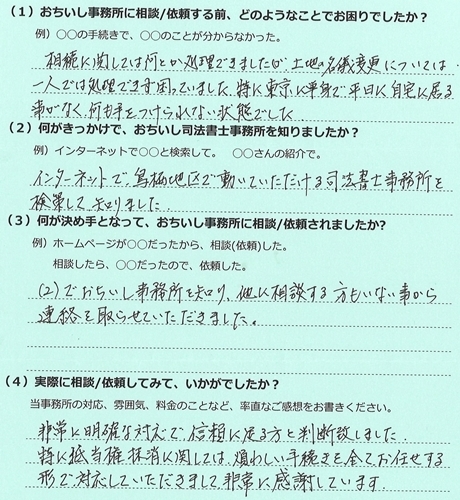 （１）おちいし事務所に相談/依頼する前、どのようなことでお困りでしたか？
例）○○の手続きで、○○のことが分からなかった。
相続に関しては何とか処理できましたが土地の名儀変更については
一人では処理できず困っていました。特に東京に単身で平日に自宅に居る
事がなく、何も手をつけられない状態でした。
（２）何がきっかけで、おちいし司法書士事務所を知りましたか？
例）インターネットで○○と検索して。　○○さんの紹介で。
インターネットで鳥栖地区で動いていただける司法書士事務所を
検索して知りました。
（３）何が決め手となって、おちいし事務所に相談/依頼されましたか？
例）ホームページが○○だったから、相談(依頼)した。
相談したら、○○だったので、依頼した。
(2)でおちいし事務所を知り、他に相談する方もいない事から
連絡を取らせていただきました。
（４）実際に相談/依頼してみて、いかがでしたか？
当事務所の対応、雰囲気、料金のことなど、率直なご感想をお書きください。
非常に明確な対応で信頼に足る方と判断致しました。
特に抵当権抹消に関しては、煩わしい手続きを全てお任せする
形で対応していただきまして非常に感謝しています。